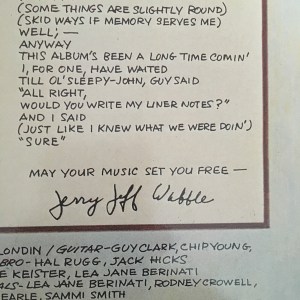 (SOME THINGS ARE SLIGHTLY ROUND)
(SKID WAYS IF MEMORY SERVES ME)
WELL; —
ANYWAY
THIS ALBUM'S BEEN A LONG TIME COMIN'
I, FOR ONE, HAVE WAITED
TILL OL' SLEEPY-JOHN, GUY SAID
"ALL RIGHT,
WOULD YOU WRITE MY LINER NOTES?"
AND I SAID
(JUST LIKE I KNEW WHAT WE WERE DOIN')
"SURE"
MAY YOUR MUSIC SET YOU FREE —
Jerry Jeff Walker
LONDIN / GUITAR-GUY CLARK, CHIP YOUNG,
BRO-HAL RUGG, JACK HICKS
E KEISTER, LEA JANE BERINATI
ALS-LEA JANE BERINATI, RODNEY CROWELL,
EARLE, SAMMI SMITH